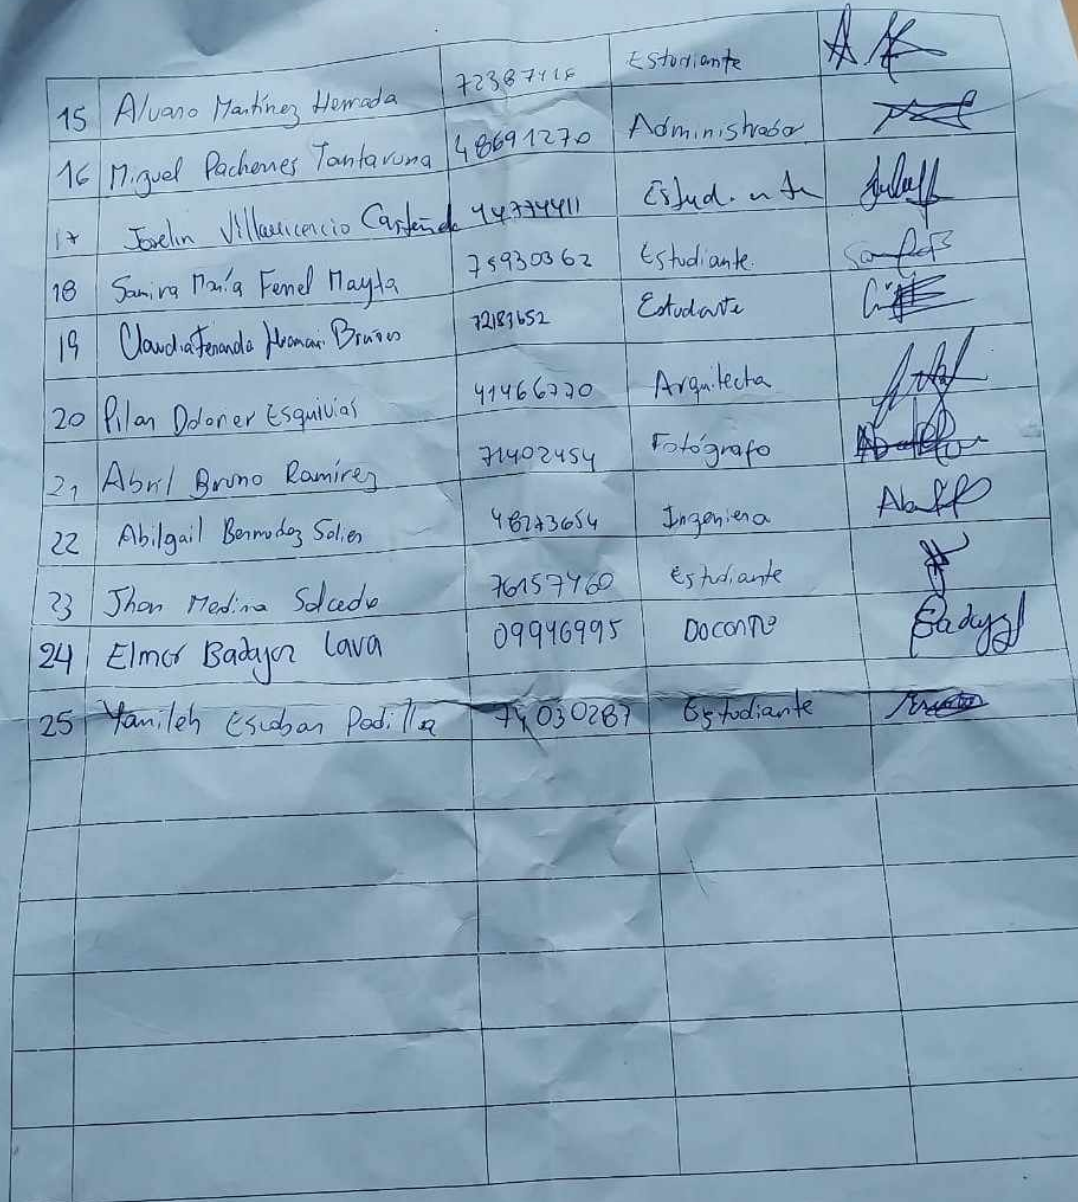 15 Alvaro Martínez Herrada 72387116 Estudiante
16 Miguel Pacherres Tantaruna 48691270 Administrador
17 Joselin Villavicencio Castañeda 44774411 Estudiante
18 Samira María Fernel Mayta 75930362 Estudiante
19 Claudia Fernanda Huamani 72183652 Estudiante
20 Pilar Esquivias 41466770 Arquitecta
21 Abril Bruno Ramírez 71402454 Fotógrafo
22 Abilgail Bermudez Solier 48273654 Ingeniera
23 Jhon Medina Salcedo 76157460 Estudiante
24 Elmer Badajoz Lava 09946995 Docente
25 Yamileh Escobar Padilla 74030287 Estudiante